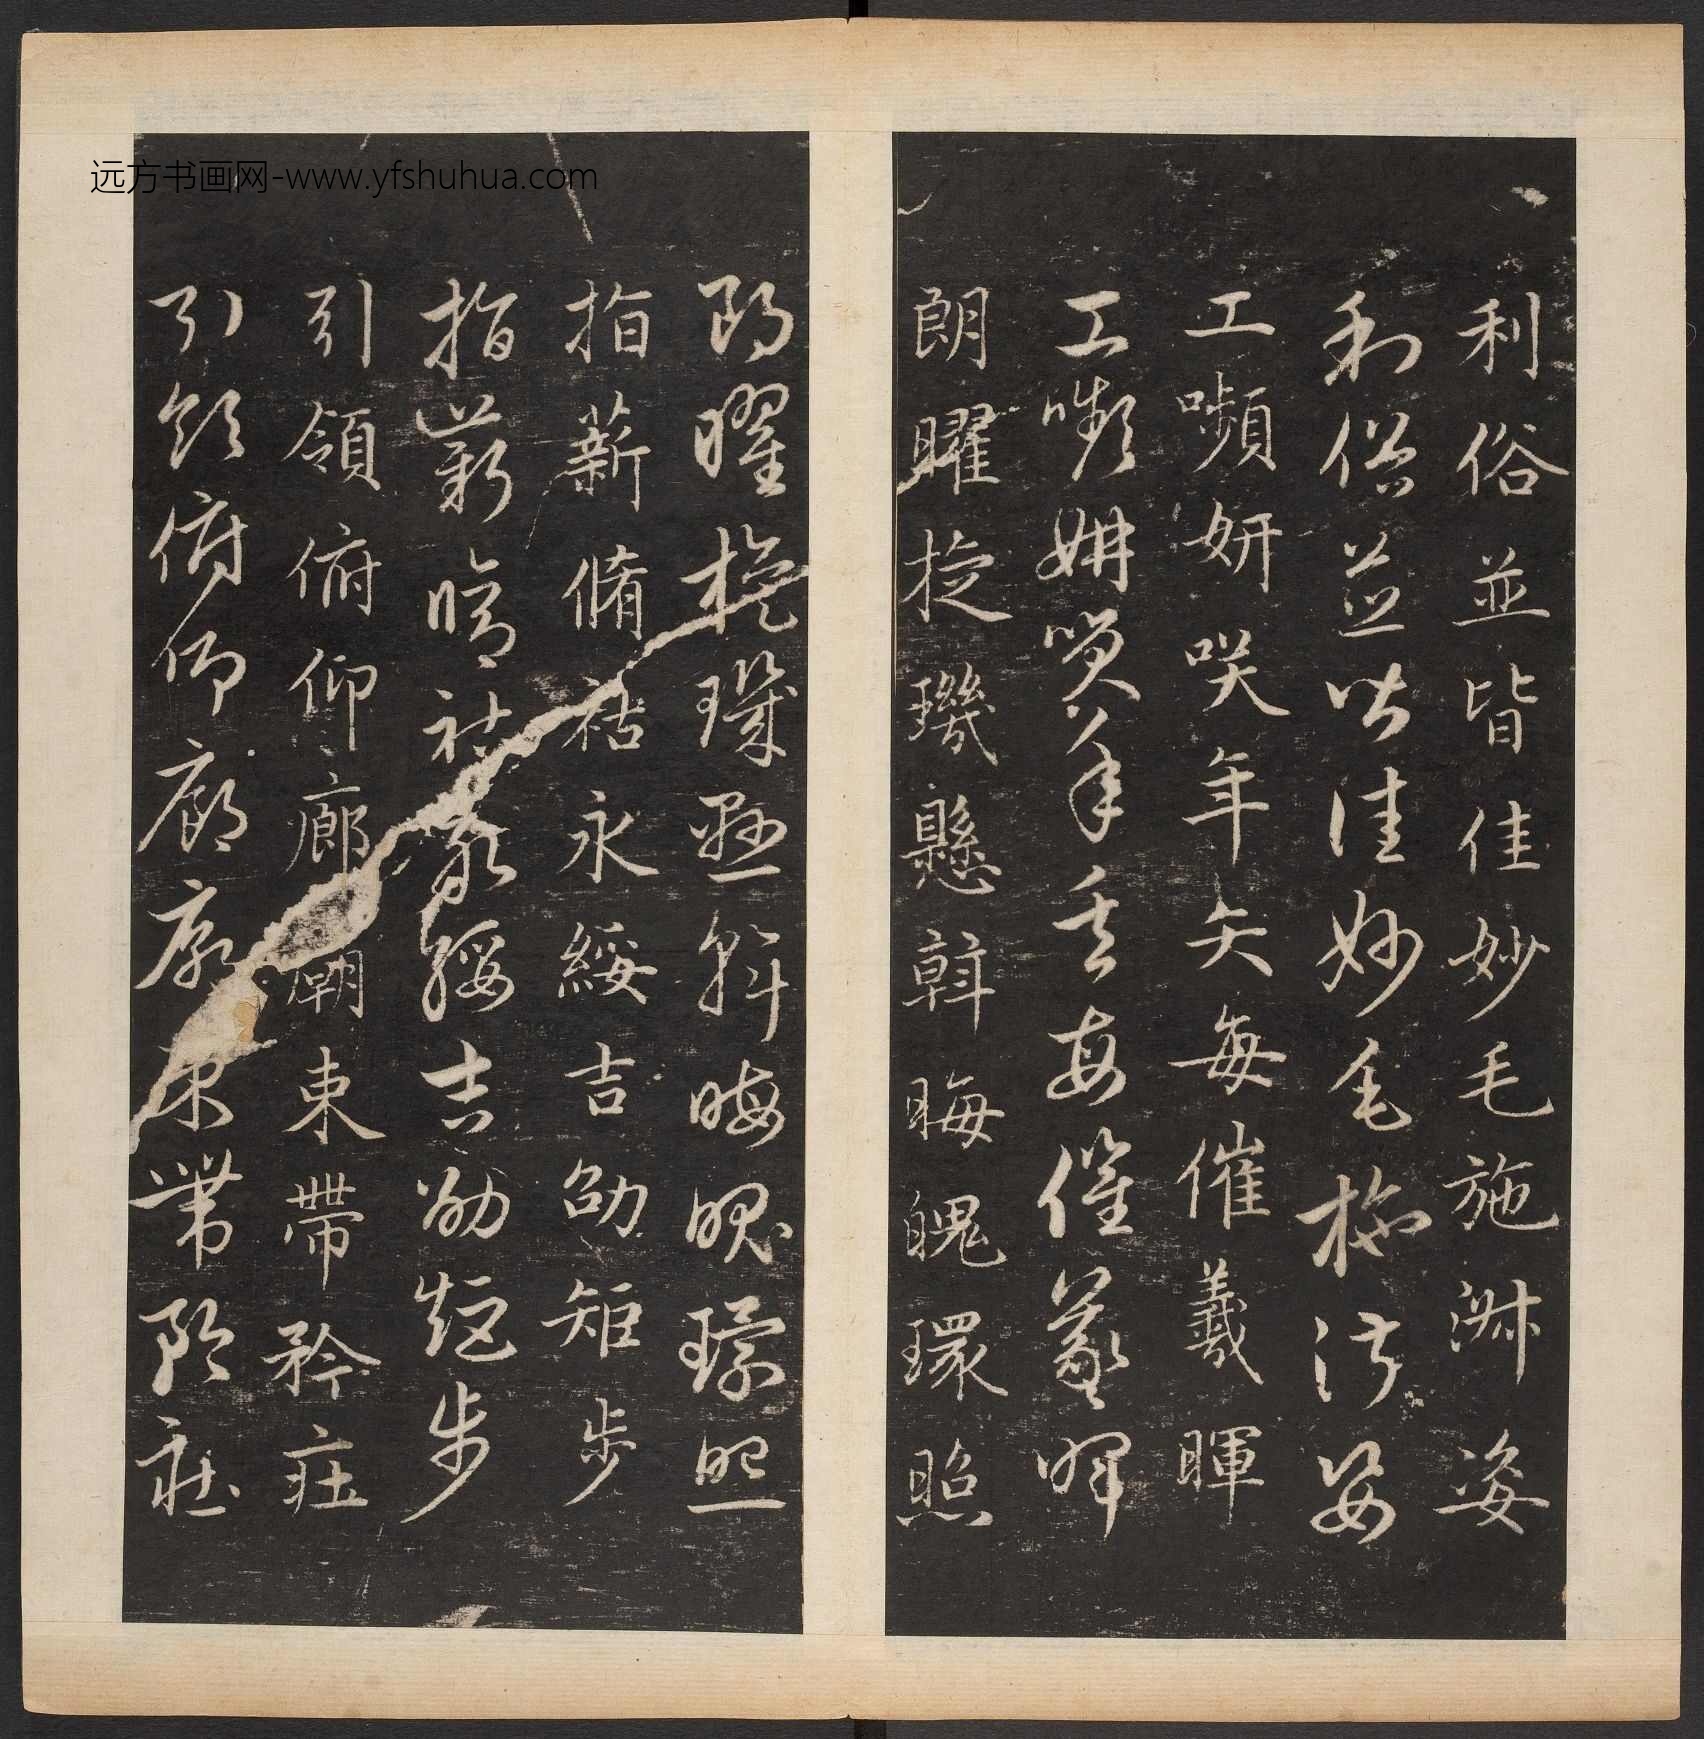 远方书画网-www.yfshuhua.com
利俗並皆佳妙毛施淋姿
利俗並皆佳妙毛施淑姿
工嚬妍咲年矢每催羲暉
工嚬妍笑年矢每催羲暉
朗曜捉璣懸斡晦魄環照
朗曜旋璣懸斡晦魄環照
指薪脩祜永綏吉劭矩步
指薪脩祜永綏吉劭矩步
引領俯仰廊廟束帶矜莊
引領俯仰廊廟束帶矜莊